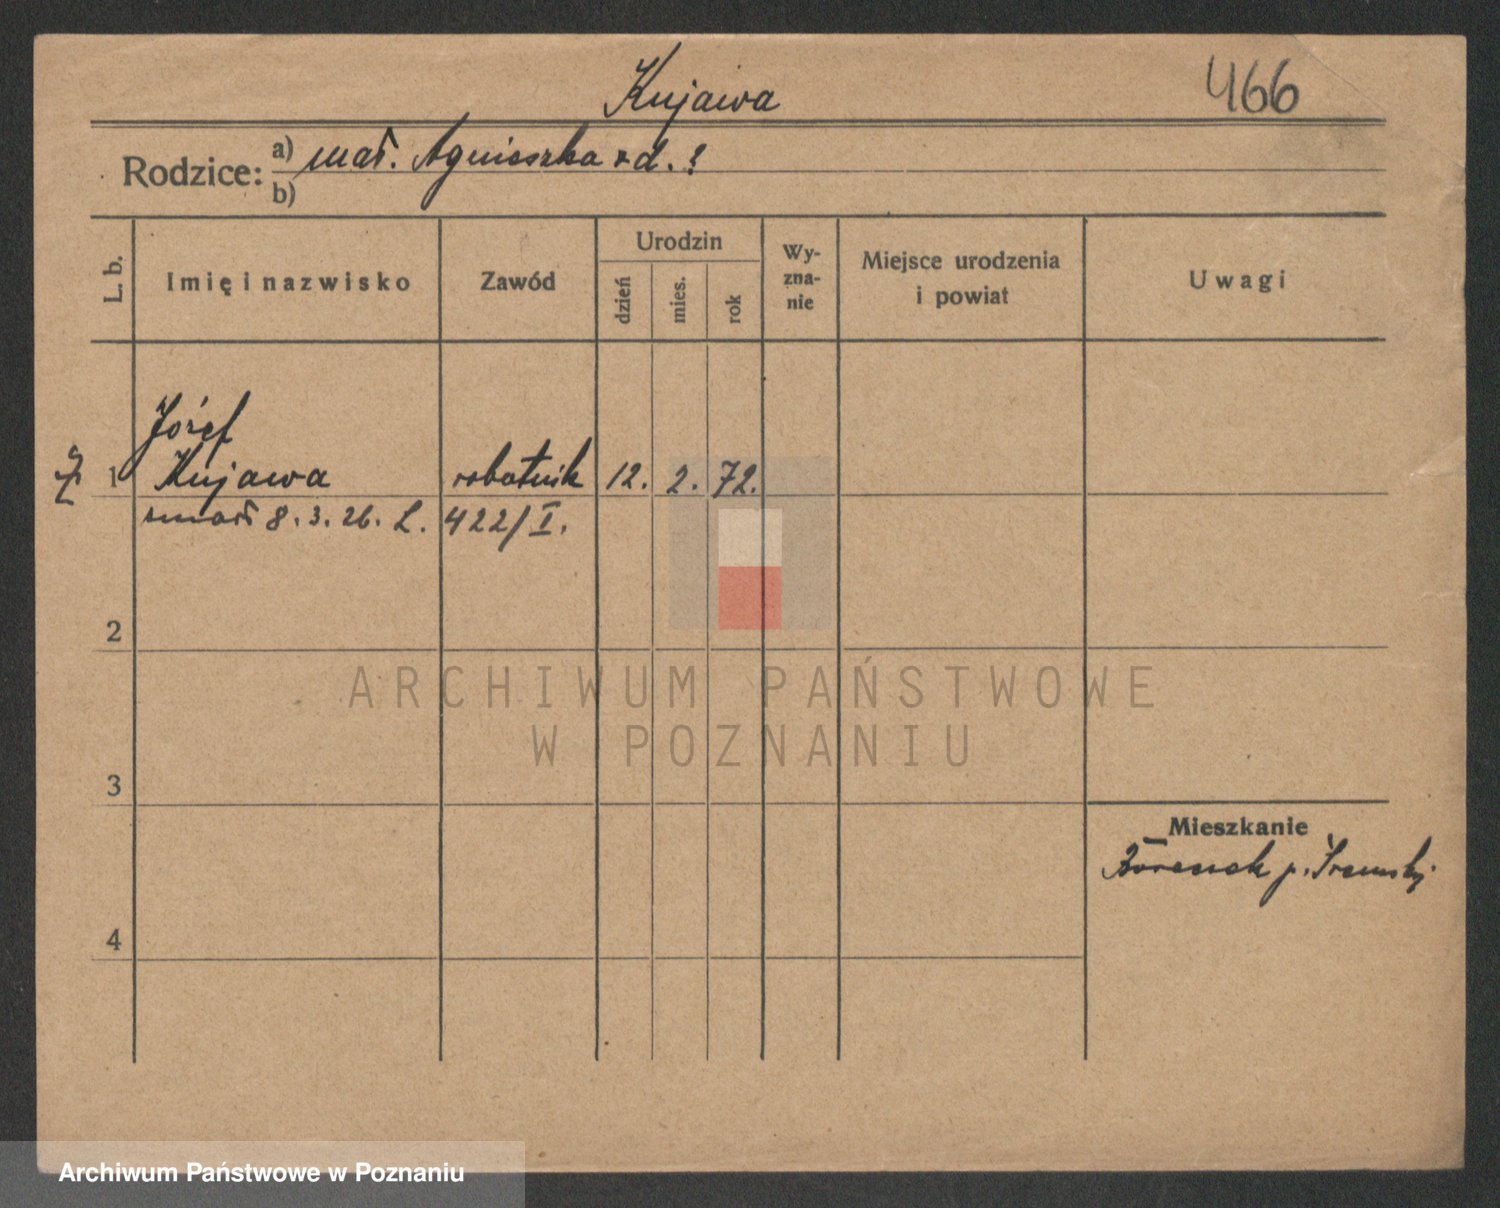 Kujawa
466
Rodzice: a) mał. Agnieszka zd. ?
b)
L. b.
Imię i nazwisko
Zawód
Urodzin
dzień
mies.
rok
Wy-
zna-
nie
Miejsce urodzenia
i powiat
Uwagi
Józef
1 Kujawa robotnik 12. 2. 72.
zmarł 8. 3. 26. L. 422/I.
2
3
4
Mieszkanie
p. Śremski
ARCHIWUM PAŃSTWOWE
W POZNANIU
Archiwum Państwowe w Poznaniu